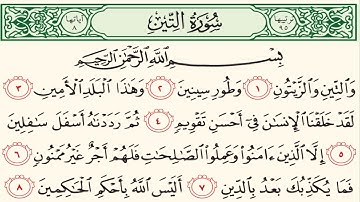 ترتيبها ٩٥ سُورَةُ التِّينِ آياتها ٨
بِسْمِ اللَّهِ الرَّحْمَٰنِ الرَّحِيمِ
وَالتِّينِ وَالزَّيْتُونِ ١ وَطُورِ سِينِينَ ٢ وَهَٰذَا الْبَلَدِ الْأَمِينِ ٣
لَقَدْ خَلَقْنَا الْإِنسَٰنَ فِىٓ أَحْسَنِ تَقْوِيمٍ ٤ ثُمَّ رَدَدْنَٰهُ أَسْفَلَ سَٰفِلِينَ
٥ إِلَّا الَّذِينَ ءَامَنُوا۟ وَعَمِلُوا۟ الصَّٰلِحَٰتِ فَلَهُمْ أَجْرٌ غَيْرُ مَمْنُونٍ ٦
فَمَا يُكَذِّبُكَ بَعْدُ بِالدِّينِ ٧ أَلَيْسَ اللَّهُ بِأَحْكَمِ الْحَٰكِمِينَ ٨